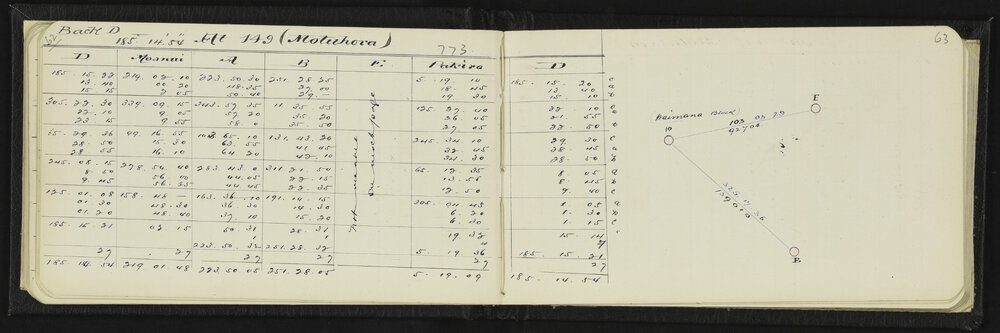 Back D
62 185° 14' 54 At 149 (Motuhora)
773
63
D Moanui A B E. Pakira D
185. 15. 22 219. 02. 10 223. 50. 30 251. 28. 25 5. 19. 10 185. 15. 20 c
13. 40 00. 20 48. 35 27. 00 18. 45 13. 40 a
15. 15 2 05 50. 40 29 — 19. 30 15. 10 b
305. 22. 30 339. 09. 15 343. 57. 35 11. 35. 55 125. 27. 40 22. 30 c
22. 10 9 05 57. 20 35. 20 26. 05 21. 55 a
23. 15 9 55 58. 0 35. 50 27. 05 22. 50 b
65. 29. 36 99. 16. 55 65. 10 131. 43. 20 245. 34. 10 29. 30 c
28. 50 15. 30 63. 55 41. 45 32. 45 28. 45 a
28. 55 16. 10 64. 20 42. 10 34. 30 28. 50 b
245. 08. 15 278. 54. 40 283. 43. 0 311. 21. 50 65. 12. 35 8 05 a
8. 50 56. 40 44. 05 22. 15 13. 55 8 45 b
9. 45 56. 35 44. 45 22. 35 12. 50 9. 40 c
125. 01. 08 158. 48 — 163. 36. 10 191. 14. 15 305. 04. 45 1 05 a
01. 30 48. 30 36. 30 14. 30 6. 20 1. 30 b
01. 20 48. 40 37. 10 15. 20 6. 30 1. 15 c
185. 15. 21 02. 15 50 31 28. 31 19 32 15. 14
1 1 4 7
223. 50. 32 251. 28. 32
27 27 27 27 5. 19. 36 185. 15. 21
27 27
185. 14. 54 219. 01. 48 223. 50. 05 251. 28. 05 5. 19. 09 185. 14. 54
Not
Waimana Block
10
103 03 79
92706
E
B